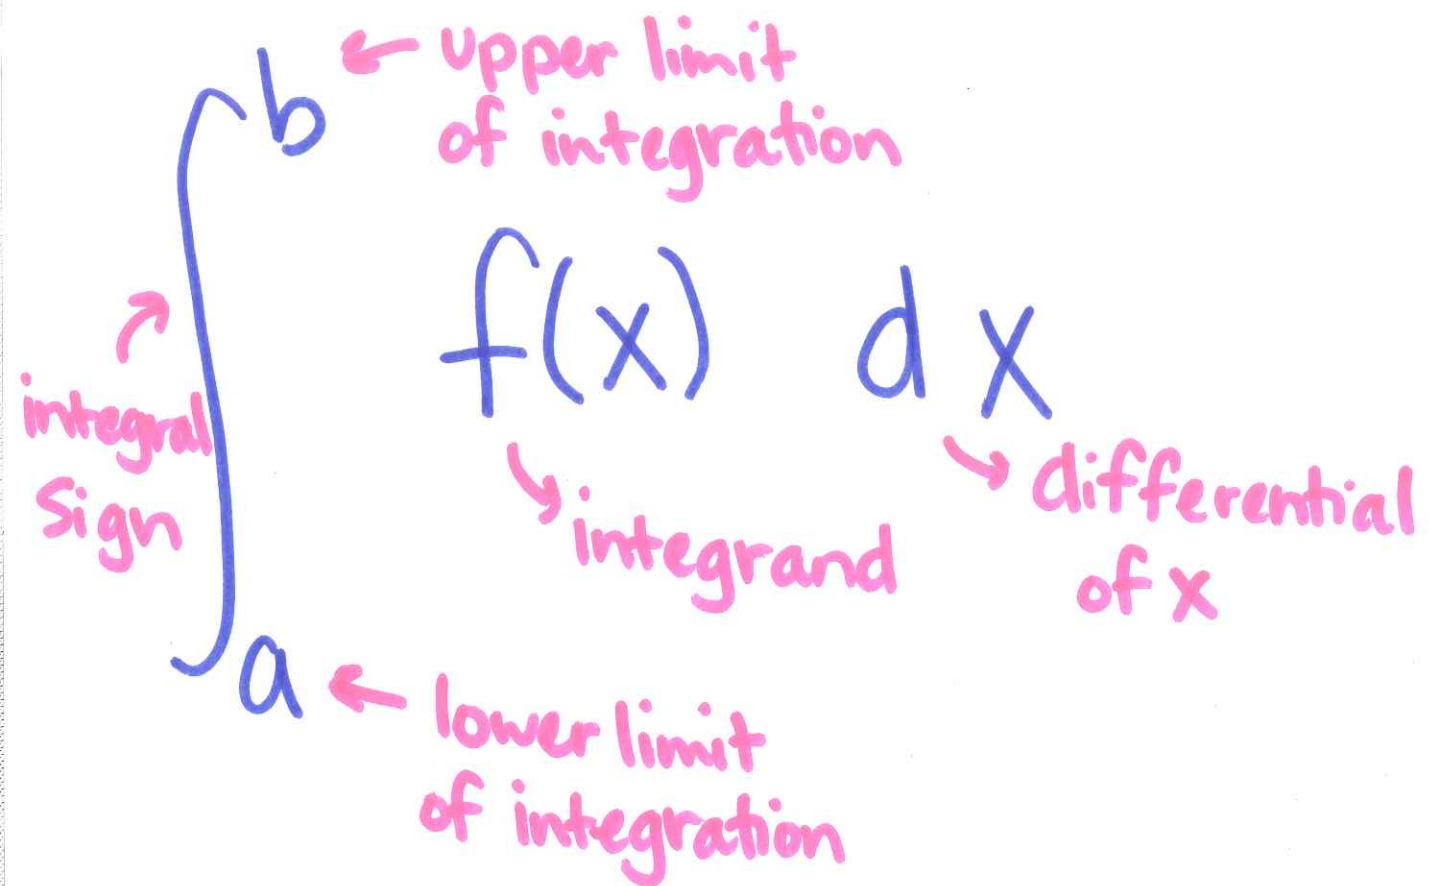 b ← upper limit
of integration
∫ f(x) dx
integral
sign
integrand
differential
of x
a ← lower limit
of integration